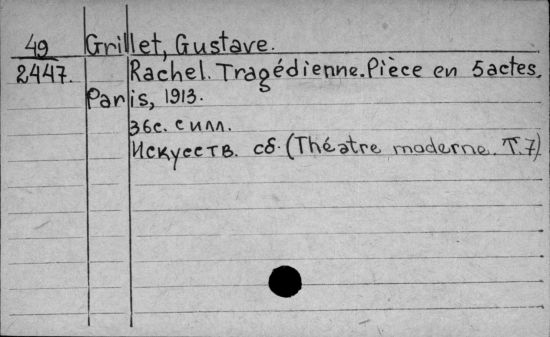 49 Grillet, Gustave.
2447. Rachel. Tragédienne. Pièce en 5 actes.
Paris, 1913.
36с. с илл.
Искусств. сб. (Théatre moderne. T. 7)